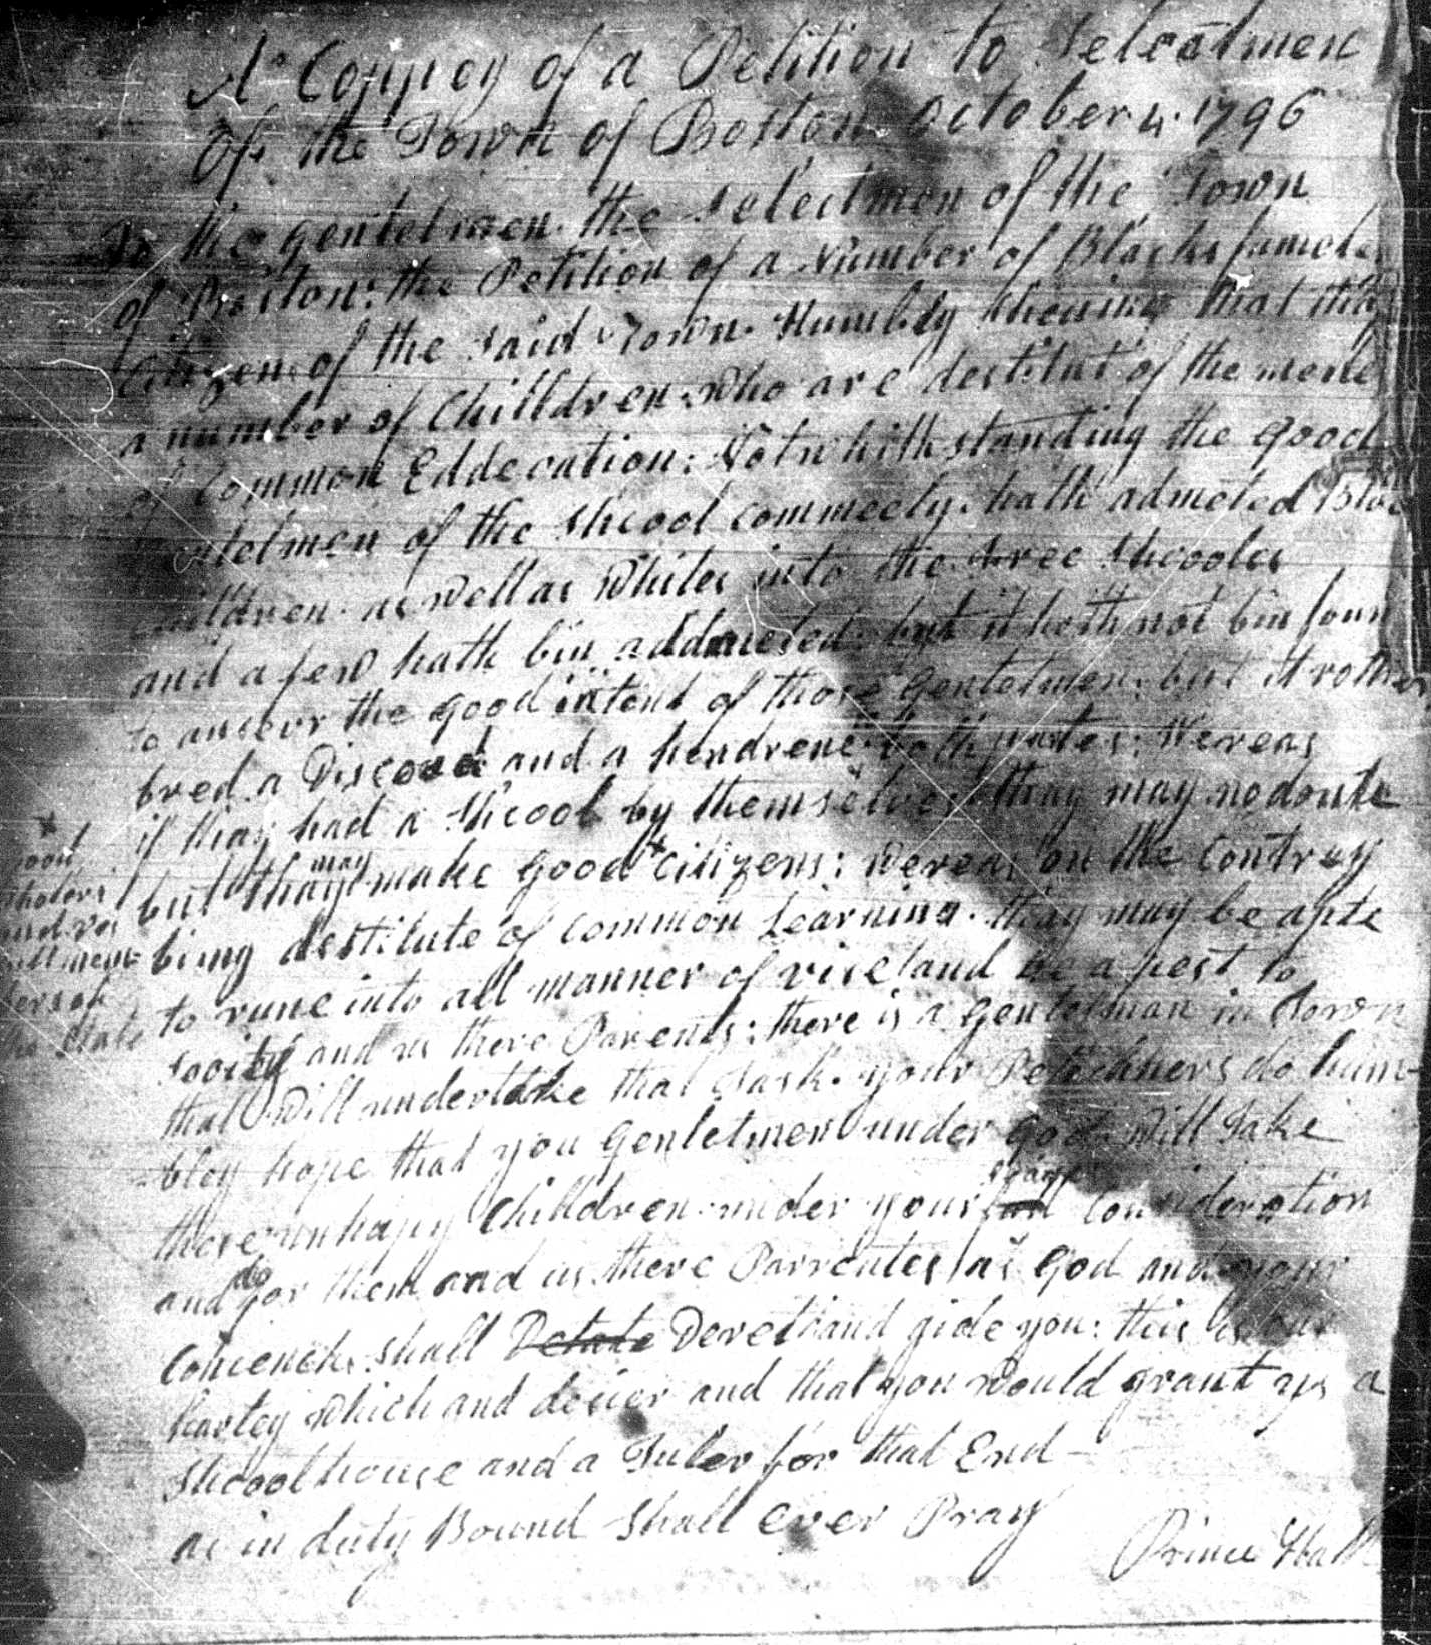 A Coppey of a Petition to Selectmen
Of the Town of Boston October 4. 1796
To the gentelmen the Selectmen of the Town
of Boston: the Petition of a Number of Blacks famele
Citizen of the said Town. Humbly Sheuing that thay
a number of Childdren who are destitut of the mene
of Common Eddecation: Notwhithstanding the good
gentelmen of the Shcool commeety. hath admeted Blac
Childdren as well as Whites into the free Shcooles
and a few hath bin addmeted but it hath not bin foun
to anseur the good intend of those gentelmen: but it rother
bred a Discord and a hendrenc to both partes: Wereas
if thay had a Shcool by themselves thay may no doute
but thay may make good × Citizens: Wereas on the Contrey
being destitute of common Learning. thay may be apte
to rune into all manner of vice and be a pest to
Society and us there Parents: there is a gentelman in Town
that Will undertake that Task. your Petichners do hum-
bley hope that you Gentelmen under God Will Take
there unhapy Childdren under your Consideration
and do for them and us there Parrentes as God and your
Concench shall Derect and gide you: this is our
hartey Which and desier and that you would grant us a
Shcoolhouse and a Tuter for that End
as in duty Bound Shall Ever Pray
Prince Hall
×
good
Sholers
and
all
ers of
the State